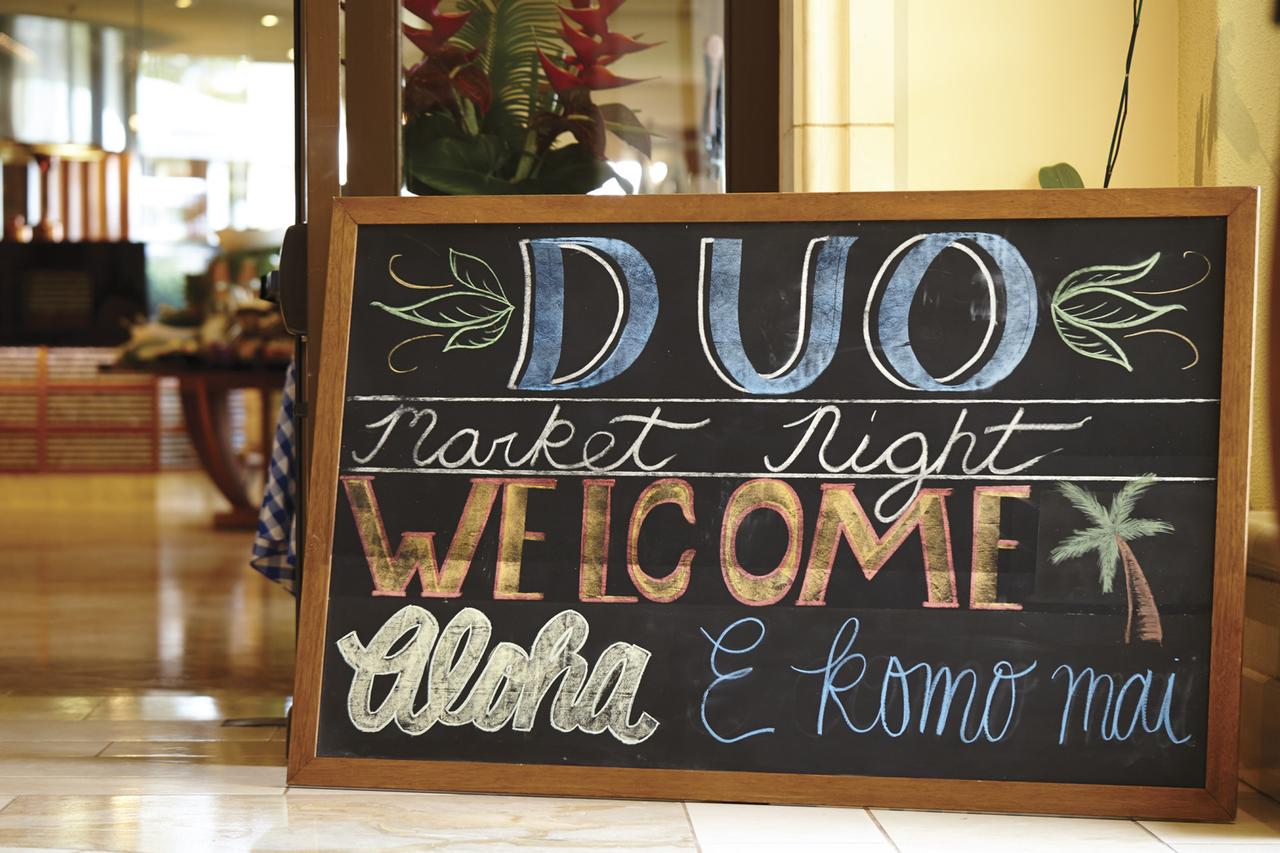 DUO
Market Night
WELCOME
Aloha E komo mai